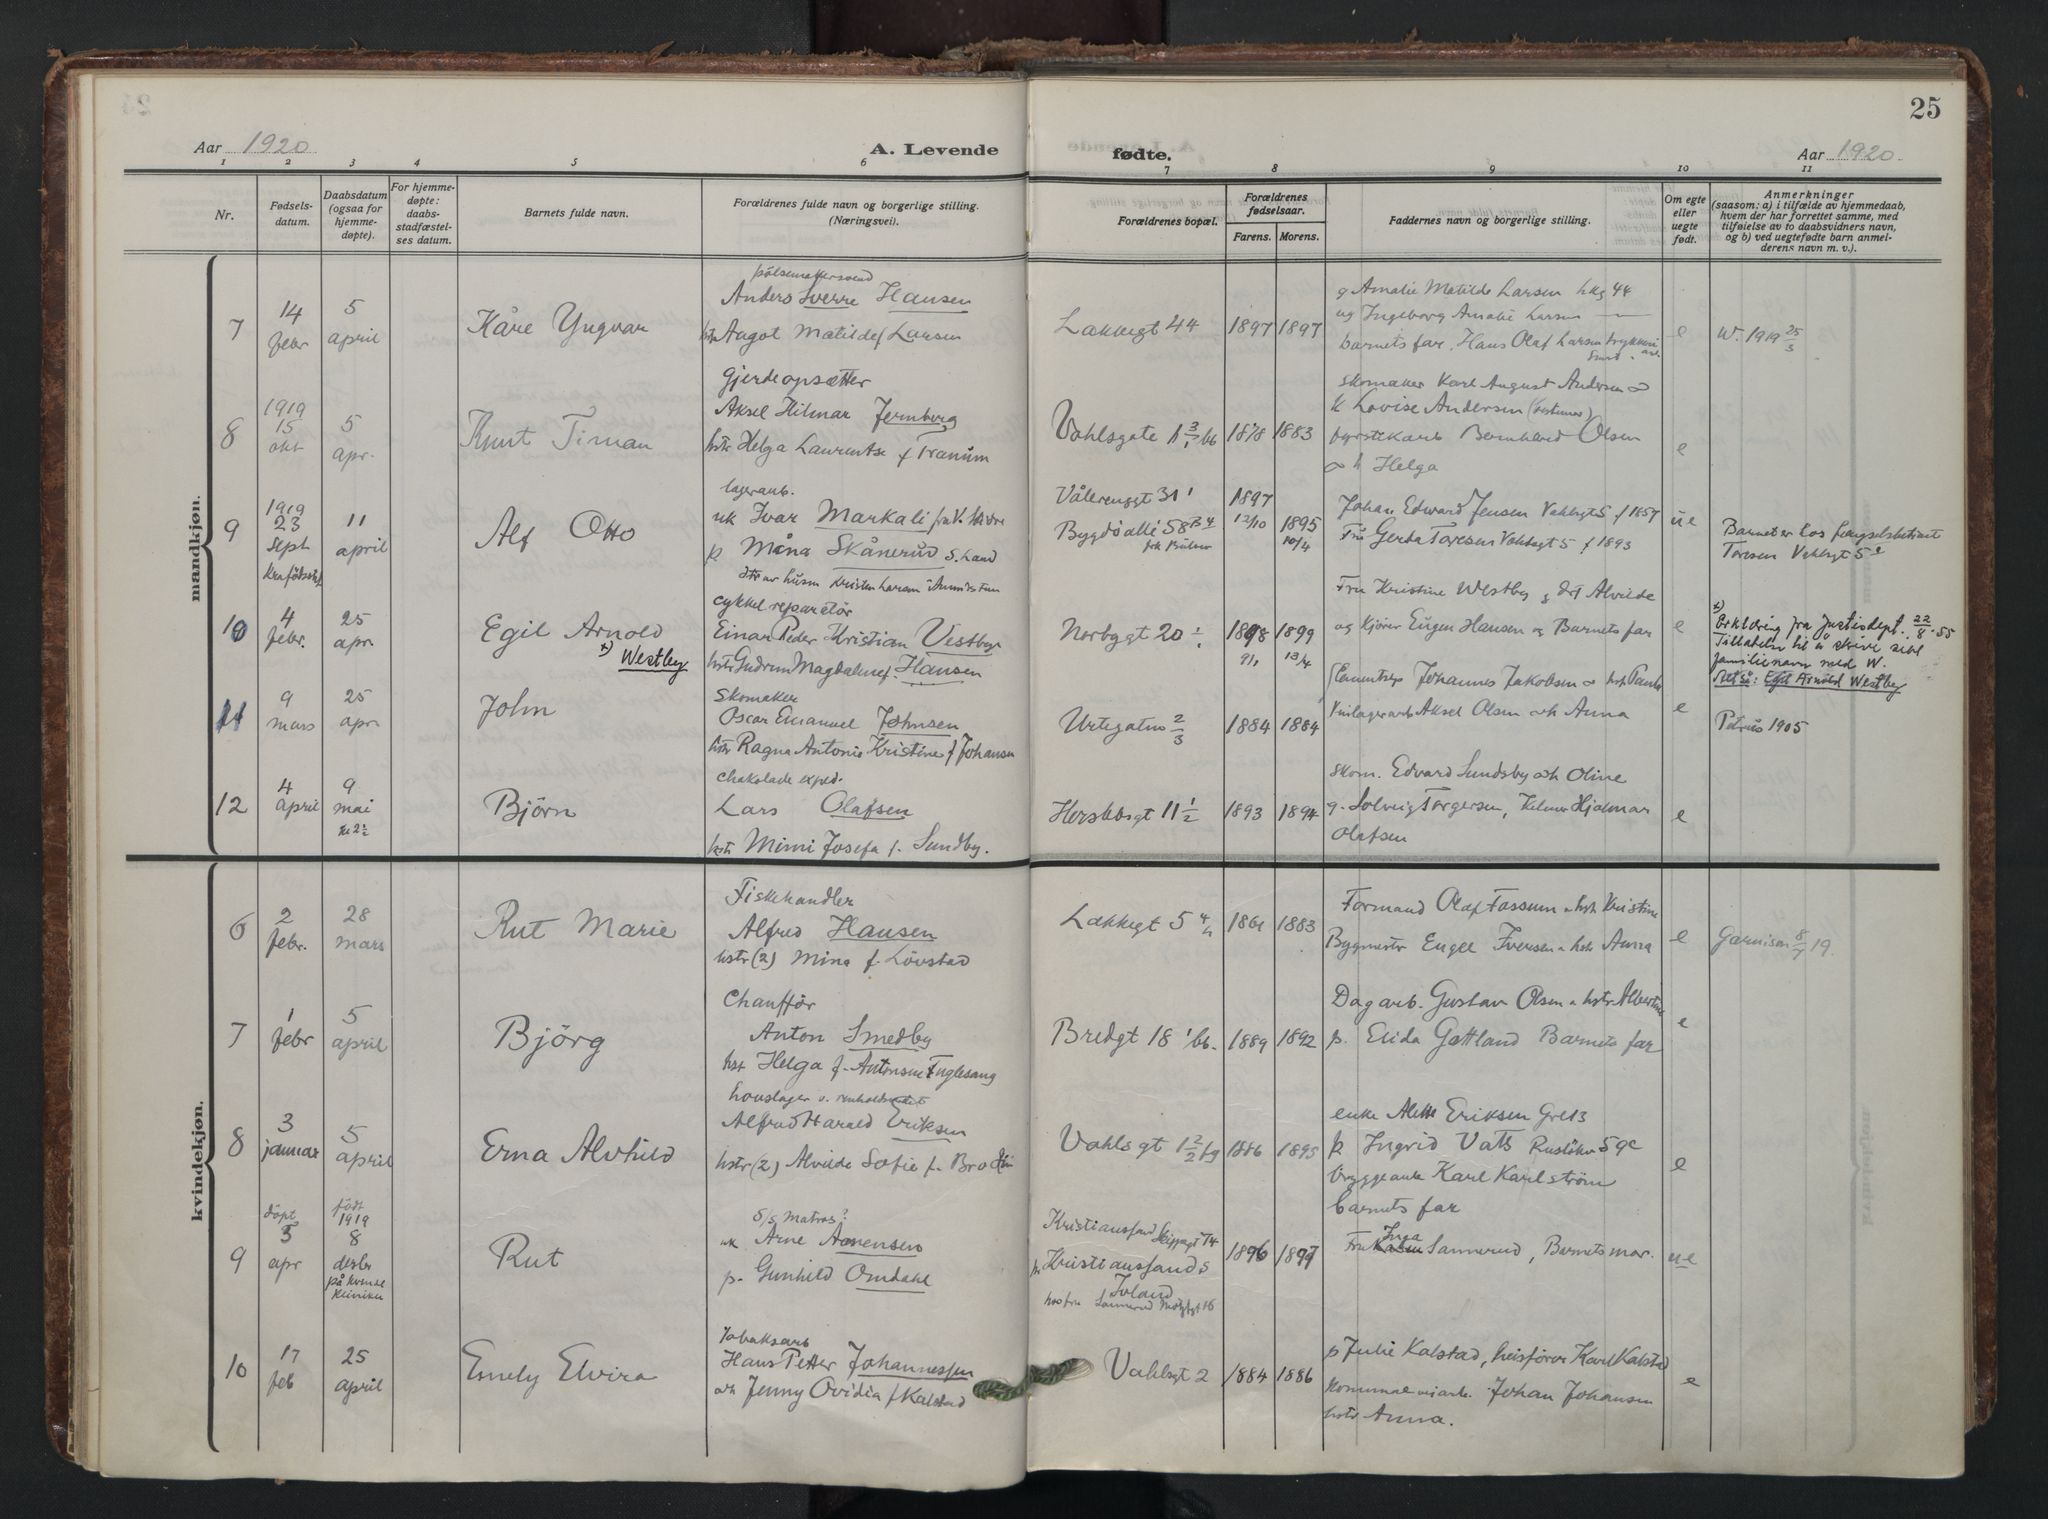 25
Aar 1920
A. Levende
fødte.
Aar 1920
1 2 3 4 5 6 7 8 9 10 11
Nr.
Fødsels-
datum.
Daabsdatum
(ogsaa for
hjemme-
døpte).
For hjemme-
døpte:
daabs-
stadfæstel-
ses datum.
Barnets fulde navn.
Forældrenes fulde navn og borgerlige stilling.
(Næringsvei).
Forældrenes bopæl.
Forældrenes
fødselsaar.
Farens. Morens.
Faddernes navn og borgerlige stilling.
Om egte
eller
uegte
født.
Anmerkninger
(saasom: a) i tilfælde av hjemmedaab,
hvem der har forrettet samme, med
tilføielse av to daabsvidners navn,
og b) ved uegtefødte barn anmel-
derens navn m. v.).
mandkjøn.
7
14
febr
5
april
Kåre Yngvar
pölsemakersvend
Anders Sverre Hansen
hstr Aagot Matilde f Larsen
Lakkegt 44
1897 1897
g Amalie Matilde Larsen Lkg 44
ug Ingeborg Amalie Larsen
barnets far, Hans Olaf Larsen
e
W. 1919 25/3
8
1919
15
okt
5
apr.
Knut Timan
Gjerdeopsætter
Aksel Hilmar Jernberg
hstr Helga Laurentse f Tranum
Vahlsgate
1878 1883
skomaker Karl August Andersen o
h Lovise Andersen
fyrstikarb Bernhard Olsen
o h Helga
e
9
1919
23
sept
11
april
Alf Otto
lagerarb.
uk Ivar Markali
p Måna Skånerud S. Land
Vålerenggt 31
Bygdö allé 58
1897
12/10
1895
10/4
Johan Edvard Jensen Vahlsgt 5 f 1857
Fru Gerda Toresen Vahlsgt 5 f 1893
ue
Barnet er hos
Toresen Vahlsgt 5
10
4
febr.
25
apr.
Egil Arnold
x) Westby
cykkel reparatör
Einar Peder Kristian Vestby
hstr Gudrun Magdalene f. Hansen
Norbygt 20
1898 1899
9/1 13/4
Fru Kristine Westby g dtr Alvilde
og kjörer Eugen Hansen og Barnets far
e
x)
Erklæring fra Justisdept. 22/8-55
Tillatelse til å skrive sitt
familienavn med W.
Altså: Egil Arnold Westby
11
9
mars
25
apr
John
skomaker
Oscar Emanuel Johnsen
hstr Ragna Antonie Kristine f Johansen
Urtegaten 2/3
1884 1884
Johannes Jakobsen o hstr
Aksel Olsen o h Anna
e
Petrus 1905
12
4
april
9
mai
kl 2½
Björn
Chokolade exped.
Lars Olafsen
hstr Mimi Josefa f. Sundby.
Herslebsgt 11 1/2
1893 1894
skom. Edvard Sundsby o h Oline
g. Solveig Torgersen, Hjalmar
Olafsen
e
kvindekjøn.
6
2
febr.
28
mars
Rut Marie
Fiskehandler
Alfred Hansen
hstr (2) Mina f. Lövstad
Lakkegt 5
1861 1883
Formand Olaf Fossum o hstr Kristine
Bygmestr Engel Iversen o hstr Anna
e
Garnison 8/7 19.
7
1
febr
5
april
Björg
Chaufför
Anton Smedby
hstr Helga f. Antonsen Fuglesang
Bredgt 18
1889 1892
Dagarb. Gustav Olsen o hstr Albertine
p. Elida Gottland Barnets far
e
8
3
januar
5
april
Erna Alvhild
Alfred Harald Eriksen
hstr (2) Alvilde Sofie f.
Vahlsgt 1 2/2
1886 1895
enke Alette Eriksen
p Ingrid Vatts
bryggearb Karl Karlström
barnets far
e
9
döpt
5
apr
födt
1919
8
desbr
på kvinde
kliniken
Rut
S/S Matros?
uk Arne Aanensen
p. Gunhild Omdahl
Kristiansand
Kristiansand S
Iveland
1896 1897
Fru Inga Sannerud, Barnets mor.
ue
10
17
feb
25
april
Emely Elvira
Tobaksarb
Hans Petter Johannessen
o h Jenny Ovidia f Kalstad
Vahlsgt 2
1884 1886
p Julie Kalstad, heisförer Karl Kalstad
Johan Johansen
hstr Anna.
e